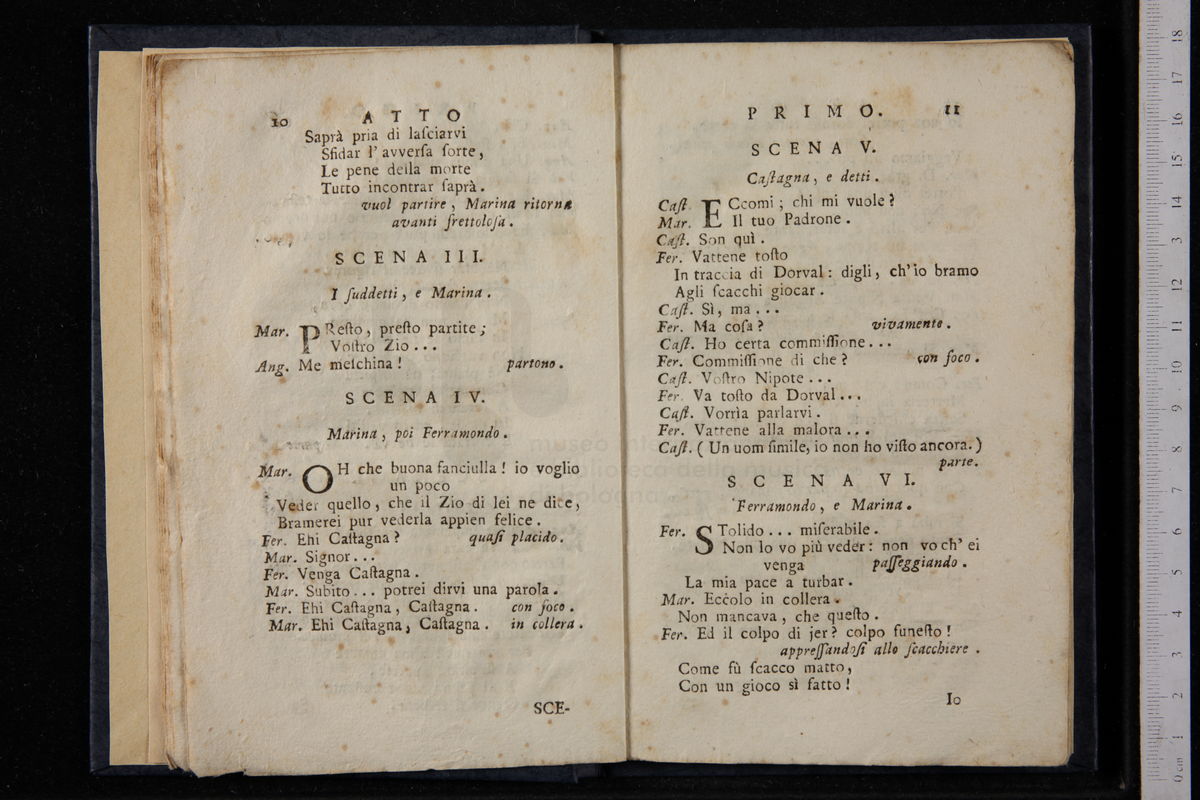 10 ATTO
Saprà pria di laſciarvi
Sfidar l'avverſa ſorte,
Le pene della morte
Tutto incontrar ſaprà.
vuol partire, Marina ritorna
avanti frettoloſa.
SCENA III.
I ſuddetti, e Marina.
Mar. PReſto, preſto partite;
Voſtro Zio...
Ang. Me meſchina! partono.
SCENA IV.
Marina, poi Ferramondo.
Mar. OH che buona fanciulla! io voglio
un poco
Veder quello, che il Zio di lei ne dice,
Bramerei pur vederla appien felice.
Fer. Ehi Caſtagna? quaſi placido.
Mar. Signor...
Fer. Venga Caſtagna.
Mar. Subito... potrei dirvi una parola.
Fer. Ehi Caſtagna, Caſtagna. con foco.
Mar. Ehi Caſtagna, Caſtagna. in collera.
SCE-
PRIMO. 11
SCENA V.
Caſtagna, e detti.
Caſt. ECcomi; chi mi vuole?
Mar. Il tuo Padrone.
Caſt. Son quì.
Fer. Vattene toſto
In traccia di Dorval: digli, ch'io bramo
Agli ſcacchi giocar.
Caſt. Sì, ma...
Fer. Ma coſa? vivamente.
Caſt. Ho certa commiſſione...
Fer. Commiſſione di che? con foco.
Caſt. Voſtro Nipote...
Fer. Va toſto da Dorval...
Caſt. Vorrìa parlarvi.
Fer. Vattene alla malora...
Caſt. (Un uom ſimile, io non ho viſto ancora.)
parte.
SCENA VI.
Ferramondo, e Marina.
Fer. STolido... miſerabile.
Non lo vo più veder: non vo ch'ei
venga paſſeggiando.
La mia pace a turbar.
Mar. Eccolo in collera.
Non mancava, che queſto.
Fer. Ed il colpo di jer? colpo funeſto!
appreſſandoſi allo ſcacchiere.
Come fù ſcacco matto,
Con un gioco sì fatto!
Io
museo
biblioteca della musica
bologna
0 cm 1 2 3 4 5 6 7 8 9 10 11 12 13 14 15 16 17 18